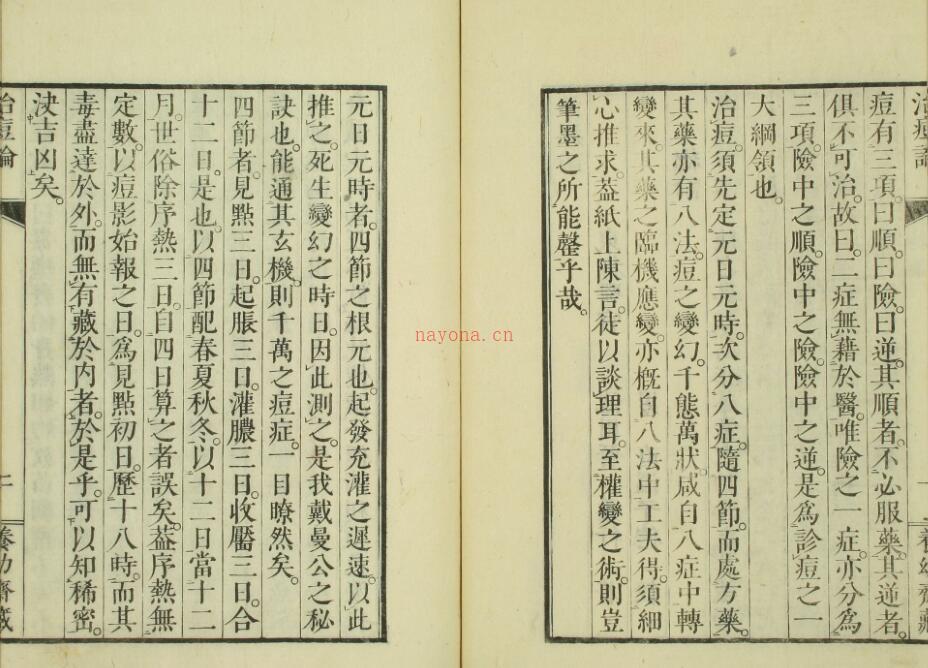 治痘論
痘有三項。曰順。曰險。曰逆。其順者。不必服藥。其逆者。
俱不可治。故曰。二症無藉於醫。唯險之一症。亦分爲
三項。險中之順。險中之險。險中之逆。是爲診痘之一
大綱領也。
治痘。須先定元日元時。次分八症。隨四節。而處方藥。
其藥亦有八法。痘之變幻。千態萬狀。咸自八症中轉
變來。其藥之臨機應變。亦概自八法中工夫得。須細
心推求。葢紙上陳言。徒以談理耳。至權變之術。則豈
筆墨之所能罄乎哉。
元日元時者。四節之根元也。起發充灌之遲速。以此
推之。死生變幻之時日。因此測之。是我戴曼公之秘
訣也。能通其玄機。則千萬之痘症。一目瞭然矣。
四節者。見點三日。起脹三日。灌膿三日。收靨三日。合
十二日。是也。以四節配春夏秋冬。以十二日當十二
月。世俗除序熱三日。自四日算之者誤矣。葢序熱無
定數。以痘影始報之日。爲見點初日。歷十八時。而其
毒盡達於外。而無有藏於内者。於是乎。可以知稀密。
決吉凶矣。
治痘論
二
nayona.cn